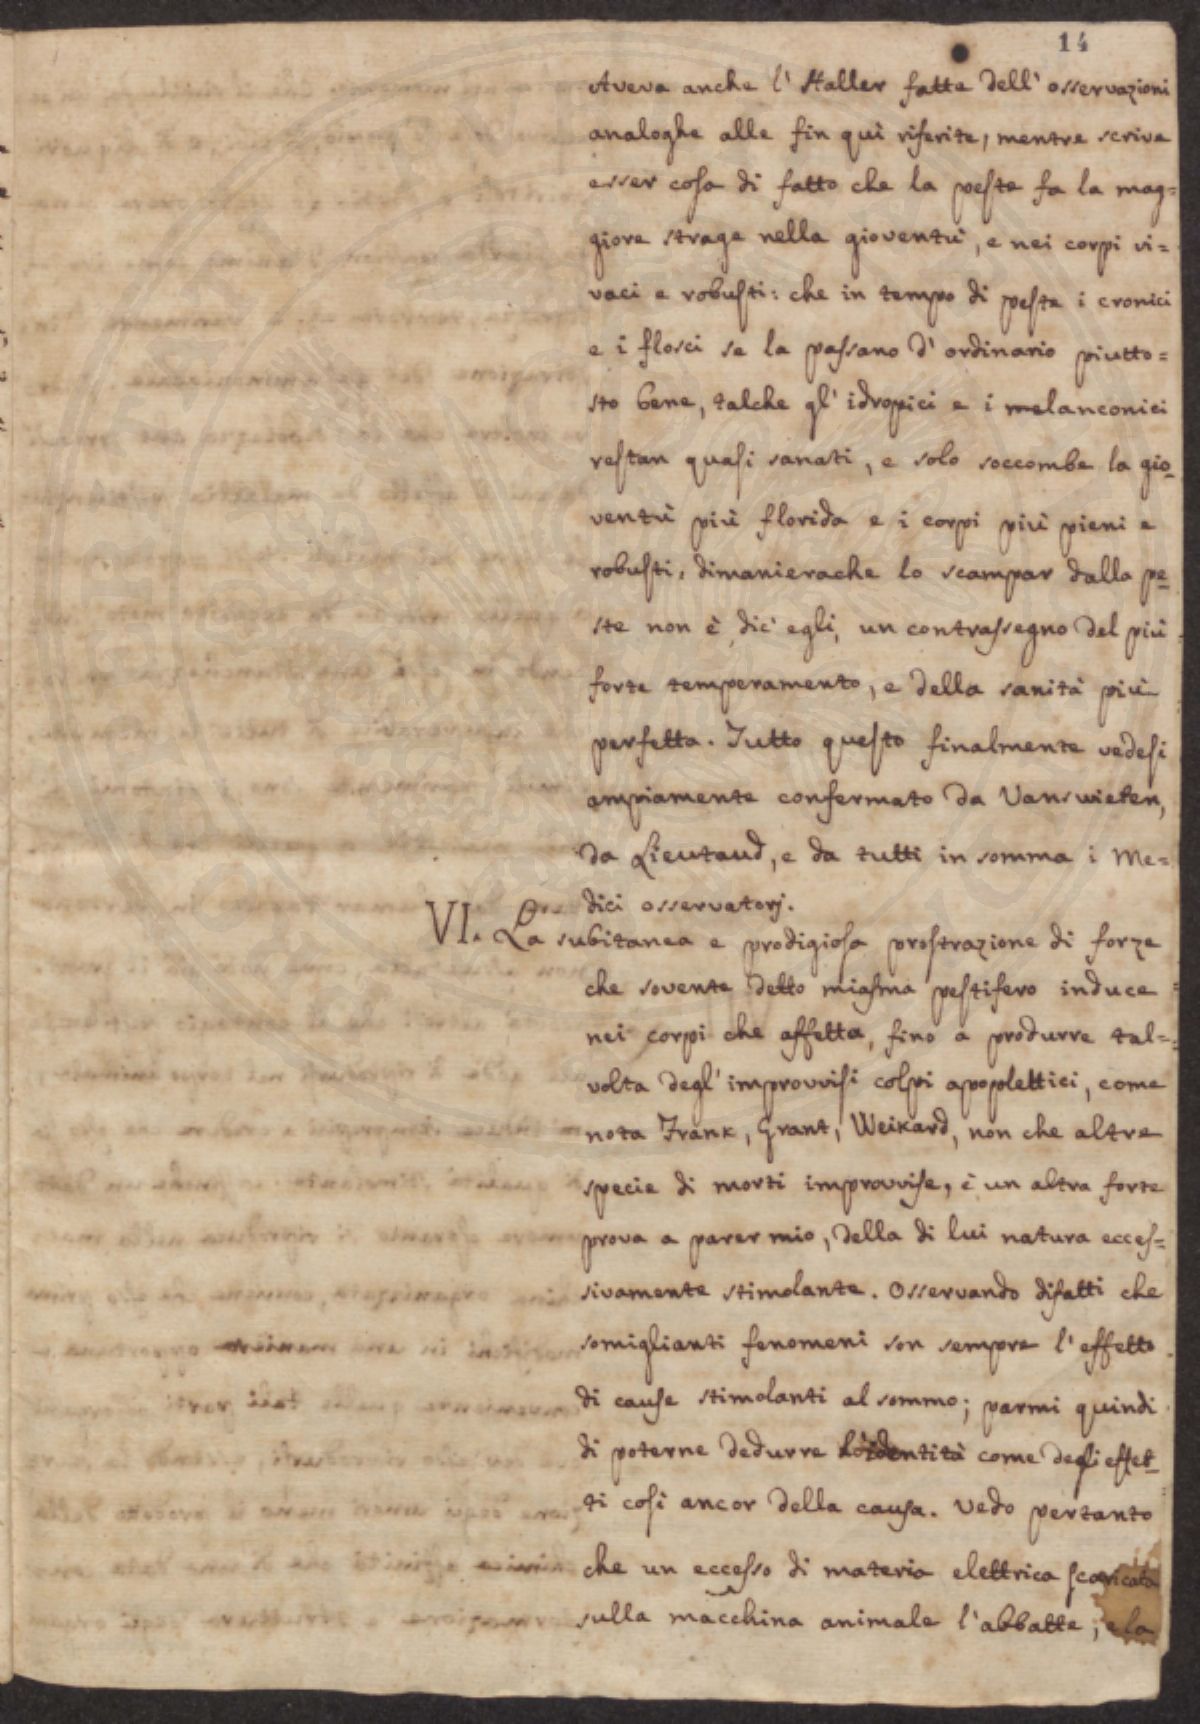 14
Aveva anche l' Haller fatte dell' osservazioni
analoghe alle fin quì riferite, mentre scrive
esser cosa di fatto che la peste fa la mag=
giore strage nella gioventù, e nei corpi vi=
vaci e robusti: che in tempo di peste i cronici
e i flosci se la passano d' ordinario piutto=
sto bene, talche gl' idropici e i melanconici
restan quasi sanati, e solo soccombe la gio_
ventù più florida e i corpi più pieni e
robusti, dimanierache lo scampar dalla pe_
ste non è, dic' egli, un contrassegno del più
forte temperamento, e della sanità più
perfetta. Tutto questo finalmente vedesi
ampiamente confermato da Vanswieten,
da Lieutaud, e da tutti in somma i Me=
dici osservatorj.
VI. La subitanea e prodigiosa prostrazione di forze
che sovente detto miasma pestifero induce
nei corpi che affetta, fino a produrre tal=
volta degl' improvvisi colpi apoplettici, come
nota Frank, Grant, Weikard, non che altre
specie di morti improvvise, è un altra forte
prova a parer mio, della di lui natura ecces=
sivamente stimolante. Osservando difatti che
somiglianti fenomeni son sempre l' effetto
di cause stimolanti al sommo; parmi quindi
di poterne dedurre l'identità come degli effet_
ti così ancor della causa. Vedo pertanto
che un eccesso di materia elettrica scaricata
sulla macchina animale l' abbatte, e la